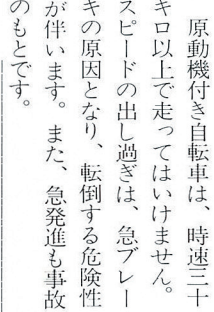 原動機付き自転車は、時速三十
キロ以上で走ってはいけません。
スピードの出し過ぎは、急ブレー
キの原因となり、転倒する危険性
が伴います。また、急発進も事故
のもとです。